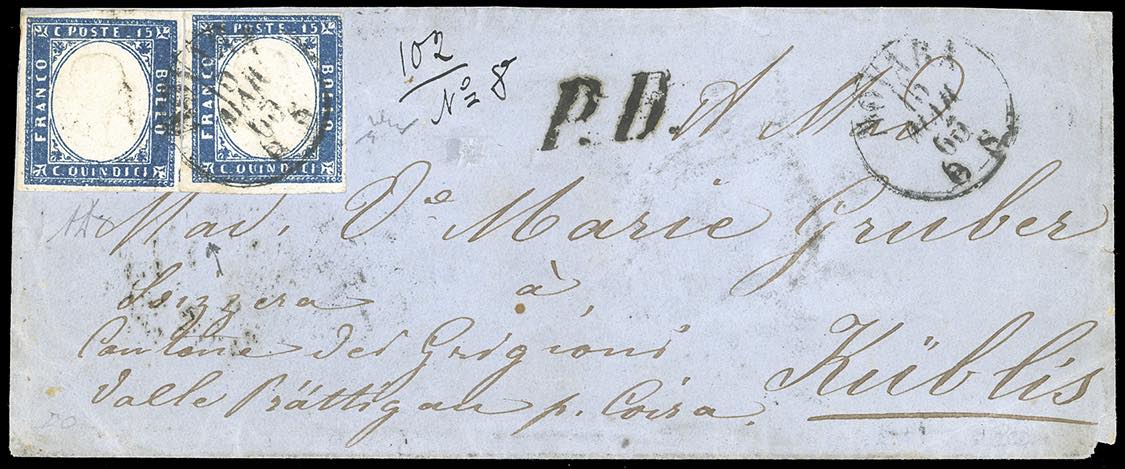 C POSTE 15
FRANCO
BOLLO
C. QUINDICI
C POSTE 15
FRANCO
BOLLO
C. QUINDICI
MAR
63
102
No 8
P.D.
NOVARA
MAR
63
A Mad
Mad. Ve Marie Gruber
Svizzera à
Cantone dei Grigioni
Valle Prättigau p. Coira.
Küblis